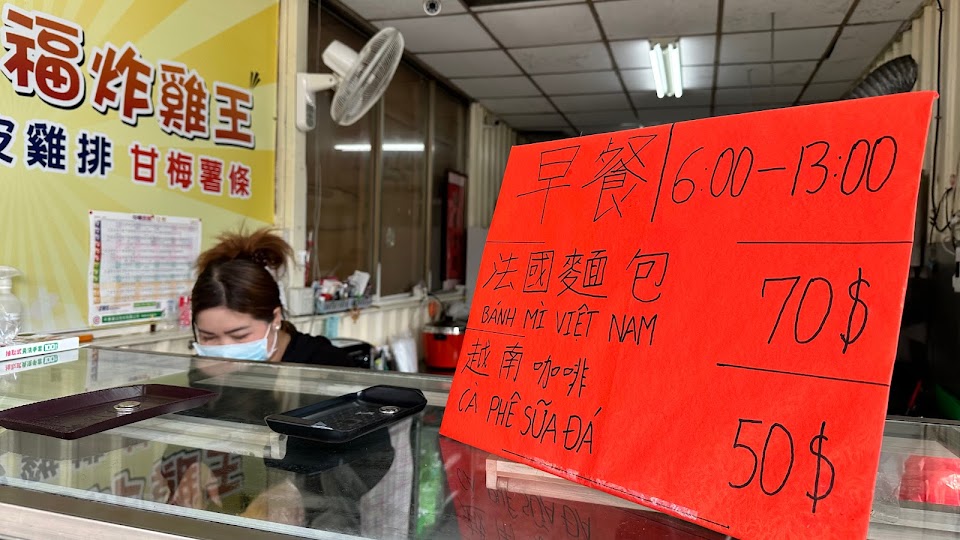 福炸雞王
皮雞排 甘梅薯條
早餐 6:00-13:00
法國麵包 70$
BÁNH MÌ VIỆT NAM
越南咖啡
CÀ PHÊ SỮA ĐÁ 50$